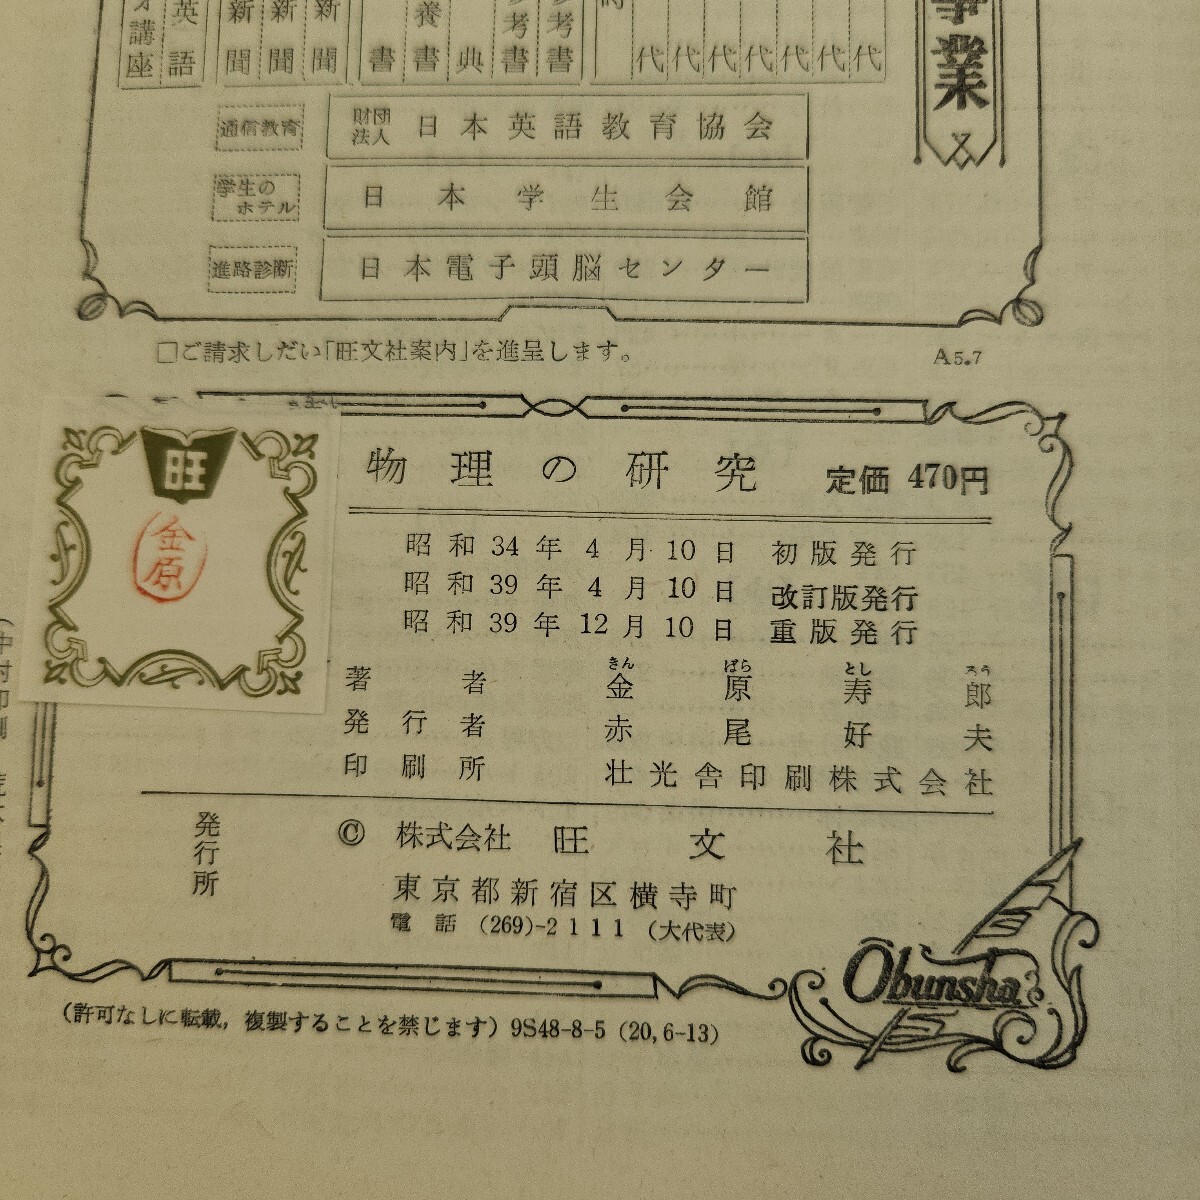 講座
英語
新聞
新聞
新聞
書
養書
典
考書
考書
代
代
代
代
代
代
代
事業
通信教育
財団法人 日本英語教育協会
学生のホテル
日本学生会館
進路診断
日本電子頭脳センター
□ご請求しだい「旺文社案内」を進呈します。
A5.7
旺
金原
物理の研究 定価 470円
昭和34年4月10日 初版発行
昭和39年4月10日 改訂版発行
昭和39年12月10日 重版発行
きん ばら とし ろう
著者 金原寿郎
発行者 赤尾好夫
印刷所 壮光舎印刷株式会社
発行所
© 株式会社 旺文社
東京都新宿区横寺町
電話 (269)-2111 (大代表)
Obunsha
(許可なしに転載, 複製することを禁じます) 9S48-8-5 (20,6-13)